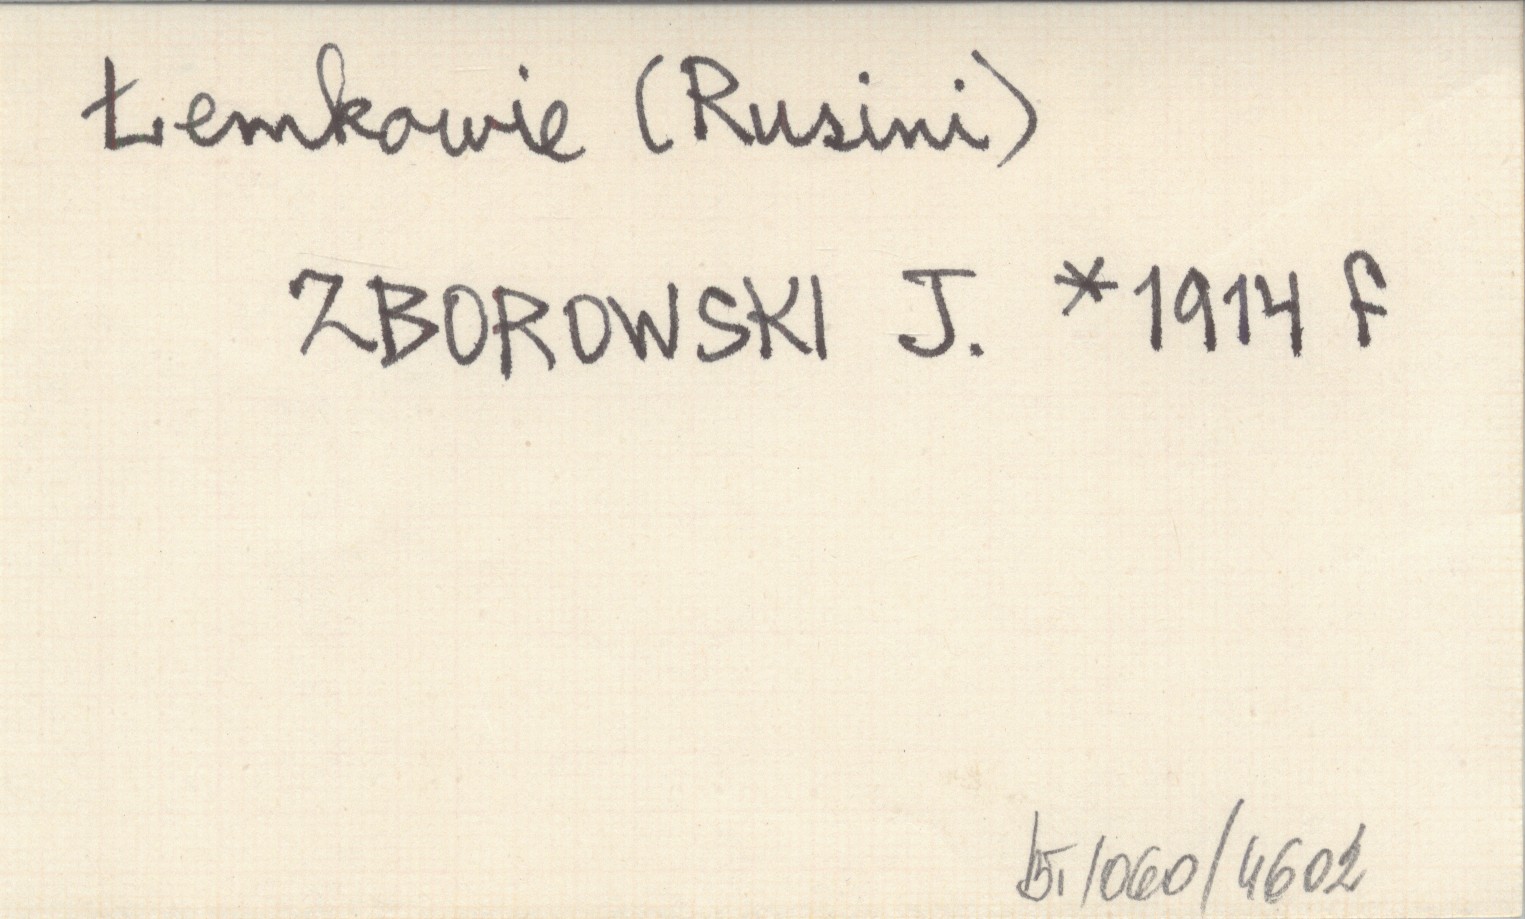 Łemkowie (Rusini)
ZBOROWSKI J. *1914 f
/060/4602